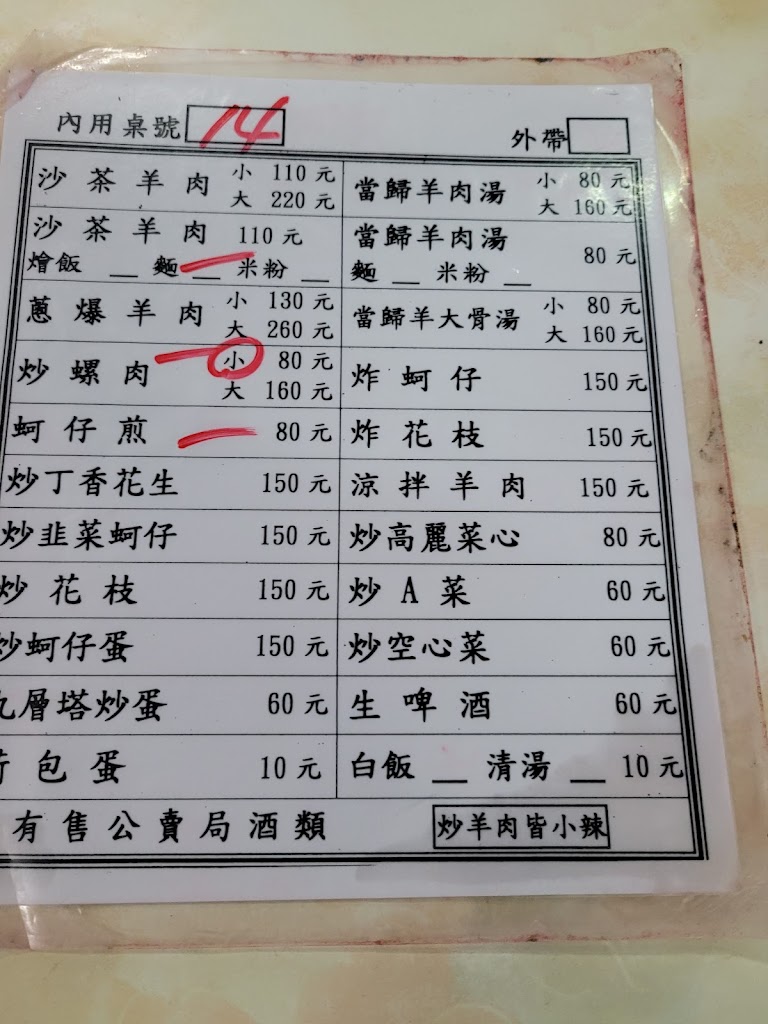 內用桌號 14 外帶
沙茶羊肉 小 110元
大 220元
當歸羊肉湯 小 80元
大 160元
沙茶羊肉 110元
燴飯 __ 麵 __ 米粉 __
當歸羊肉湯 80元
麵 __ 米粉 __
蔥爆羊肉 小 130元
大 260元
當歸羊大骨湯 小 80元
大 160元
炒螺肉 小 80元
大 160元
炸蚵仔 150元
蚵仔煎 80元
炸花枝 150元
炒丁香花生 150元
涼拌羊肉 150元
炒韭菜蚵仔 150元
炒高麗菜心 80元
炒花枝 150元
炒A菜 60元
炒蚵仔蛋 150元
炒空心菜 60元
九層塔炒蛋 60元
生啤酒 60元
荷包蛋 10元
白飯 __ 清湯 __ 10元
有售公賣局酒類
炒羊肉皆小辣